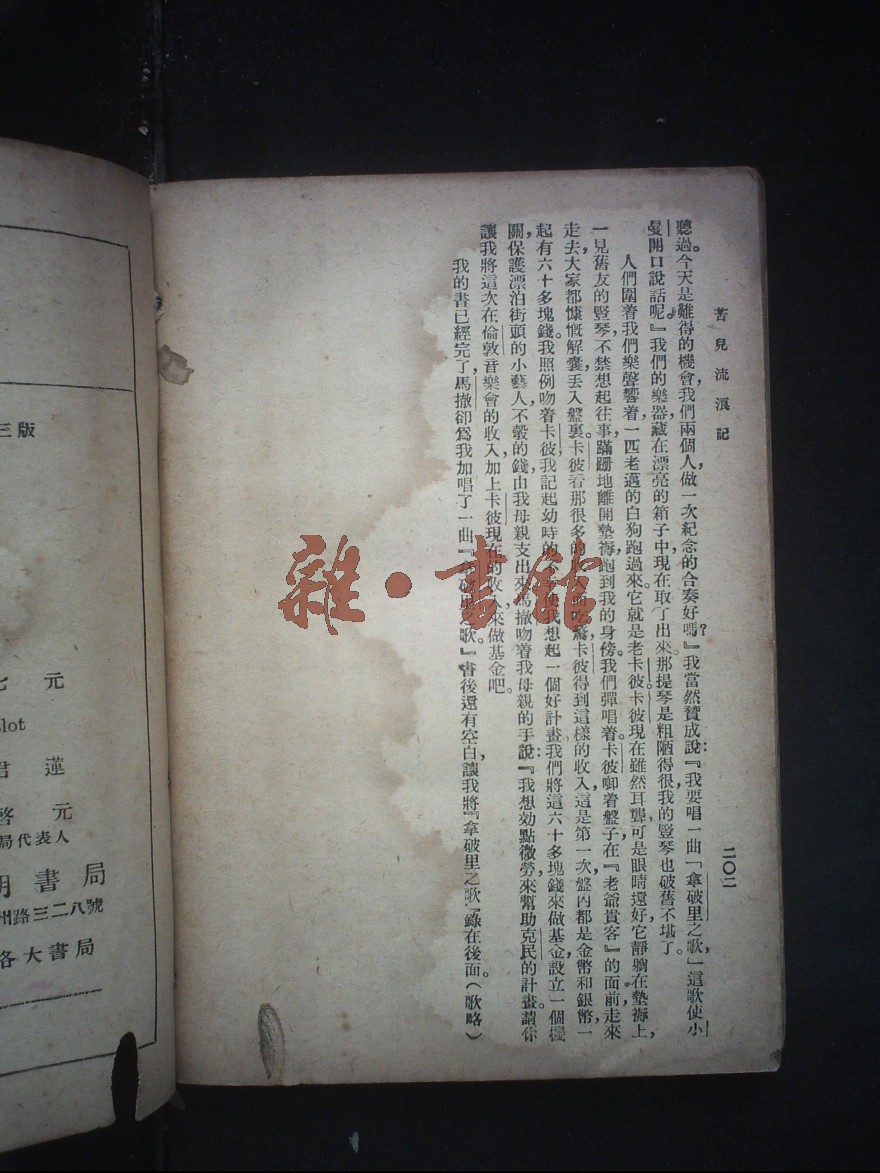 苦兒流浪記
二〇二
聽過。今天是難得的機會，我們兩個人，做一次紀念的合奏好嗎？』我當然贊成說：『我要唱一曲「拿破里之歌」，這歌使小
曼開口說話呢。』我們的樂器藏在漂亮的箱子中，現在取了出來。那提琴是粗陋得很，我的豎琴也破舊不堪了。
人們圍着我們，樂聲響着，一匹老邁的白狗跑過來。它就是老卡彼。卡彼現在雖然耳聾，可是眼睛還好，它靜躺在墊褥上，
一見舊友的豎琴，不禁想起往事，蹣跚地離開墊褥，跑到我的身傍。我們彈唱着。卡彼啣着盤子，在『老爺貴客』的面前走來
走去，大家都慷慨解囊，丟入盤裏。卡彼看那很多的收入而吃驚，卡彼得到這樣的收入，這是第一次，盤內都是金幣和銀幣，一
起有六十多塊錢。我照例吻着卡彼，我記起幼時的 使我想起一個好計畫，我們將這六十多塊錢來做基金，設立一個機
關，保護漂泊街頭的小藝人，不彀的錢，由我母親支出來。馬撒吻着我母親的手說：『我想効點微勞，來幫助克民的計畫。請你
讓我將這次在倫敦音樂會的收入，加上卡彼現在的收入，來做基金吧。
我的書已經完了，馬撒卻爲我加唱了一曲『拿破里之歌。』書後還有空白，讓我將『拿破里之歌』錄在後面。（歌略）
三版
七元
lot
君蓮
啓元
局代表人
明書局
州路三二八號
各大書局
雜·書館